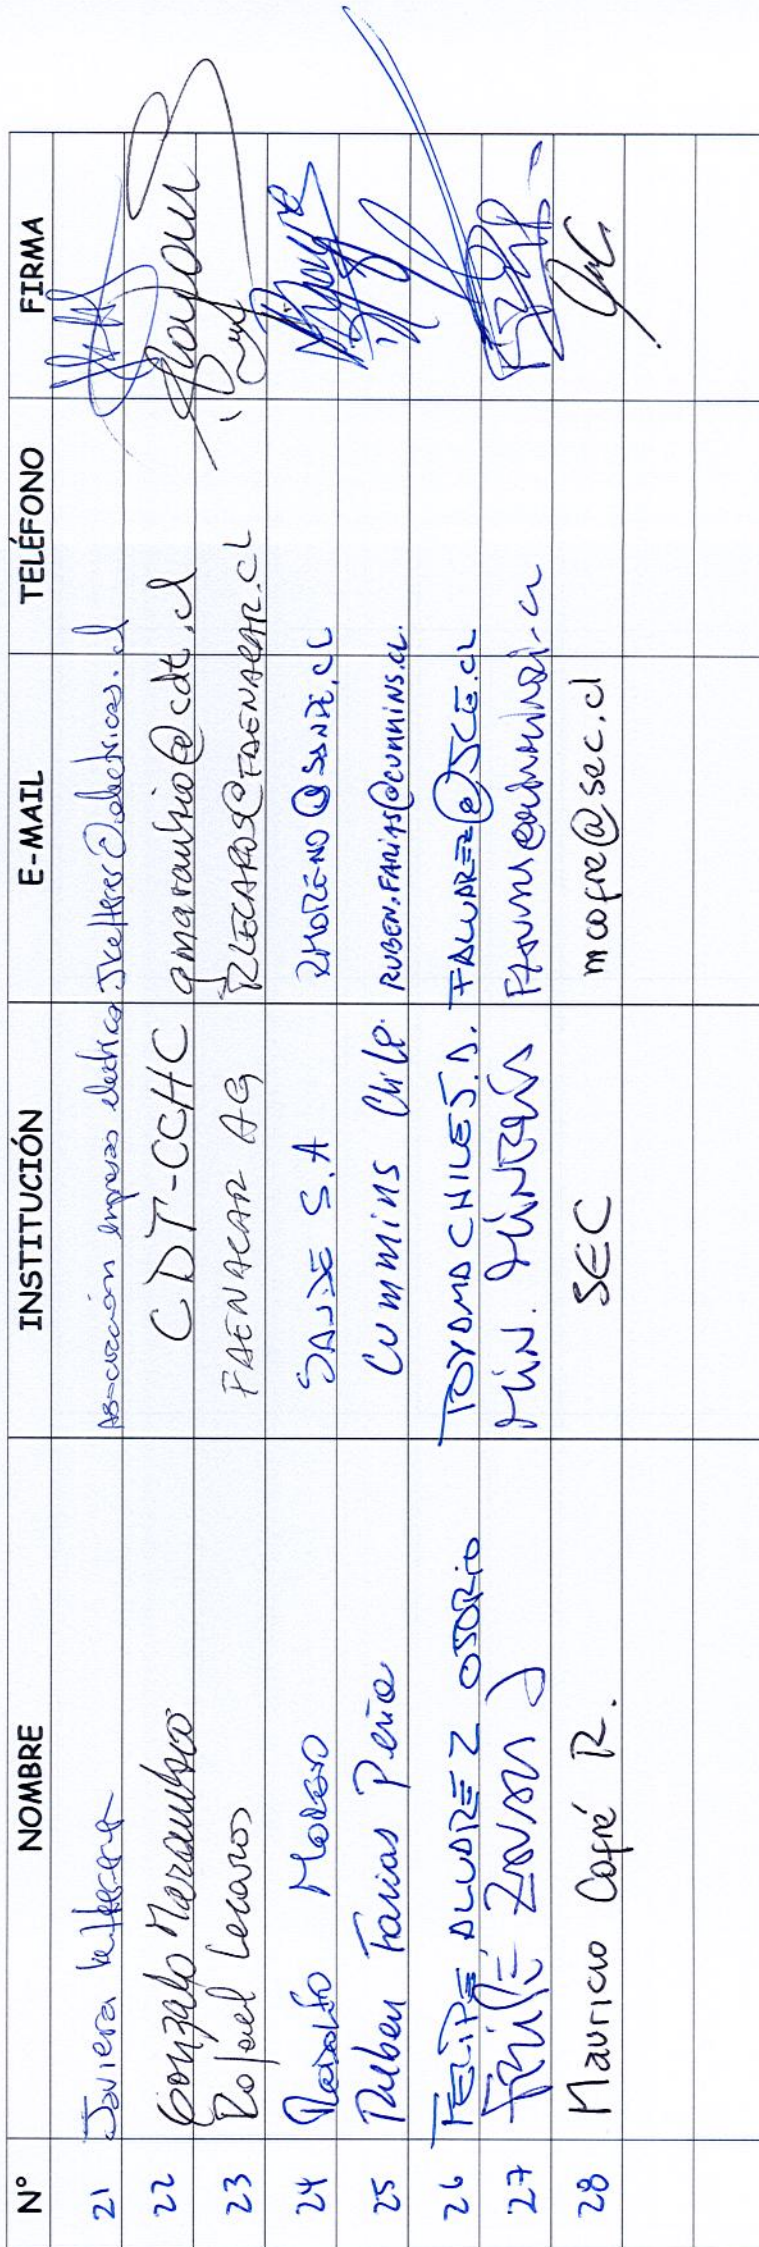 N° NOMBRE INSTITUCIÓN E-MAIL TELÉFONO FIRMA
21 Javiera Asociación empresas eléctricas
22 Gonzalo Marambio CDT-CCHC gmarambio@cdt.cl
23 Rafael Lecaros FAENACAR AG RLECAROS@FAENACAR.CL
24 Rodolfo Moreno SANDE S.A RMORENO@SANDE.CL
25 Ruben Farias Peña Cummins Chile RUBEN.FARIAS@CUMMINS.CL.
26 FELIPE ALVAREZ OSORIO TOYAMA CHILE S.A. FALVAREZ@JCE.CL
27 Min. Minería
28 Mauricio Cofré R. SEC mcofre@sec.cl